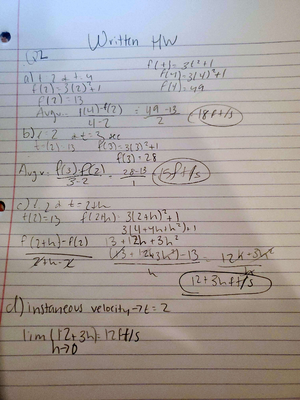 Written HW
Q2
a) t=2 & t=4
f(t)=3t²+1
f(2)=3(2)²+1
f(4)=3(4)²+1
f(2)=13
f(4)=49
Avg v= f(4)-f(2) / 4-2 = 49-13 / 2 = 18ft/s
b) t=2 & t=3 sec
f(2)=13 f(3)=3(3)²+1
f(3)=28
Avg v= f(3)-f(2) / 3-2 = 28-13 / 1 = 15ft/s
c) t=2 & t=2+h
f(2)=13 f(2+h)= 3(2+h)²+1
3(4+4h+h²)+1
13+12h+3h²
f(2+h)-f(2) / 2+h-2 = (13+12h+3h²)-13 / h = 12h+3h² / h
12+3h ft/s
d) instantaneous velocity→t=2
lim (12+3h)=12ft/s
h→0